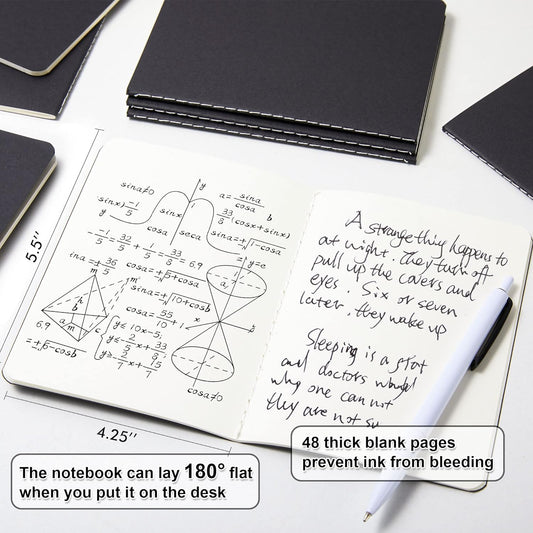 sina≠0
y
a = sina/cosa
sinx) -1/5
sinx
33/8
b
(cosx+sinx)
cosa
seca
sina=±√1-cosa
-1/5 = 32/5 + 1/5 = 33/8 = 6.9
=1/y=e
ina=±36/5
cosa=±√5+cosa
m
m'
sina=±√10+cosb
h
b
a
cosa = 55/10 + 1
x
6.9
a
M
c
y≤10x-5;
y≤-2/5x+33/8;
y≥-2/7x+15/7
=±√5-cosb
cosa≠0
A strange thing happens to
at night. They turn off
pull up the covers and
eyes. Six or seven
later, they wake up
Sleeping is a
and doctors
why one can not
they are not
5.5"
4.25"
The notebook can lay 180° flat
when you put it on the desk
48 thick blank pages
prevent ink from bleeding